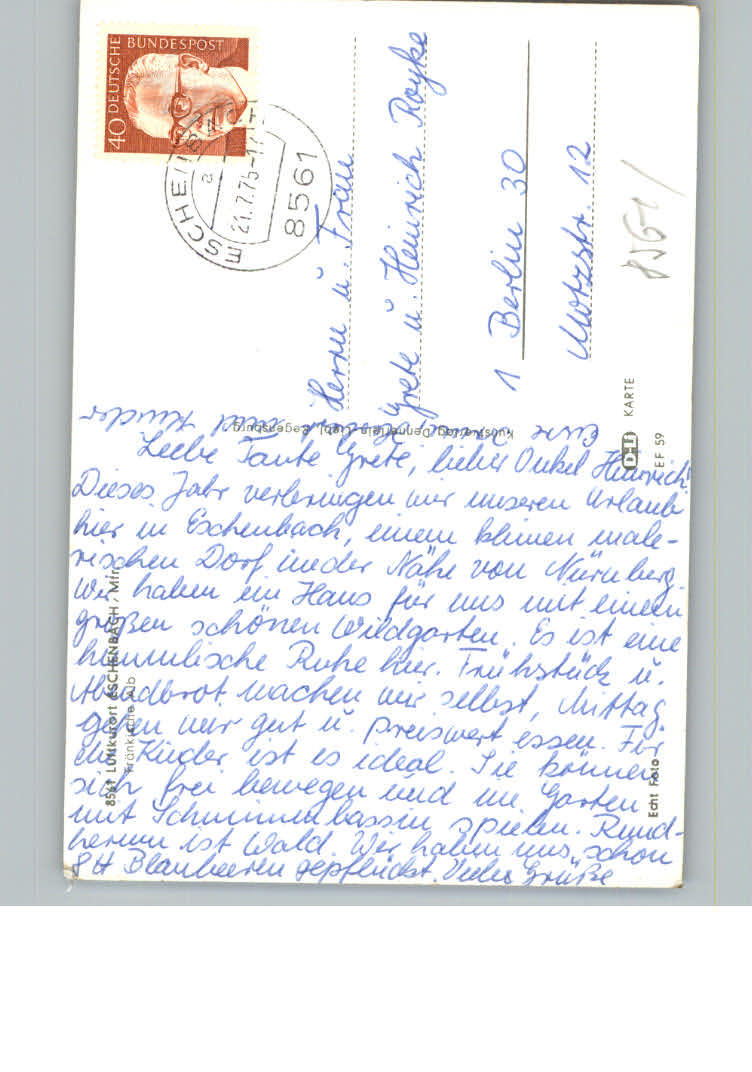 DEUTSCHE BUNDESPOST
40
ESCHENB
a
21.7.75-17
8561
Herrn u. Frau
Grete u. Heinrich Royke
1 Berlin 30
Motzstr. 12
8561
Kunstverlag Dennerlein Regensburg
KARTE
EF 59
8561 Luftkurort ESCHENBACH / Mfr.
Fränkische Alb
Echt Foto
Liebe Tante Grete, lieber Onkel Heinrich!
Dieses Jahr verbringen wir unseren Urlaub
hier in Eschenbach, einem kleinen male-
rischen Dorf in der Nähe von Nürnberg.
Wir haben ein Haus für uns mit einem
großen schönen Wildgarten. Es ist eine
himmlische Ruhe hier. Frühstück u.
Abendbrot machen wir selbst, Mittag
gehen wir gut u. preiswert essen. Für
die Kinder ist es ideal. Sie können
sich frei bewegen und im Garten
mit Schwimmbassin spielen. Rund-
herum ist Wald. Wir haben uns schon
8 H Blaubeeren gepflückt. Viele Grüße
Eure und Kinder